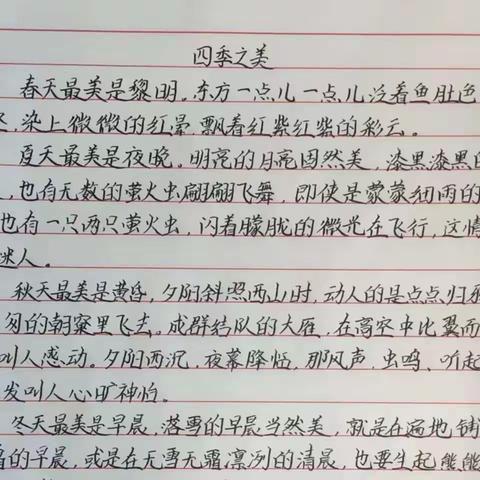 四季之美
春天最美是黎明。东方一点儿一点儿泛着鱼肚色
染上微微的红晕,飘着红紫红紫的彩云。
夏天最美是夜晚。明亮的月亮固然美,漆黑漆黑的
,也有无数的萤火虫翩翩飞舞,即使是蒙蒙细雨的
也有一只两只萤火虫,闪着朦胧的微光在飞行,这情
迷人。
秋天最美是黄昏,夕阳斜照西山时,动人的是点点归鸦
匆的朝窠里飞去。成群结队的大雁,在高空中比翼而
叫人感动。夕阳西沉,夜幕降临,那风声、虫鸣、听起
发叫人心旷神怡。
冬天最美是早晨,落雪的早晨当然美,就是在遍地铺
霜的早晨,或是在无雪无霜凛冽的清晨,也要生起熊熊